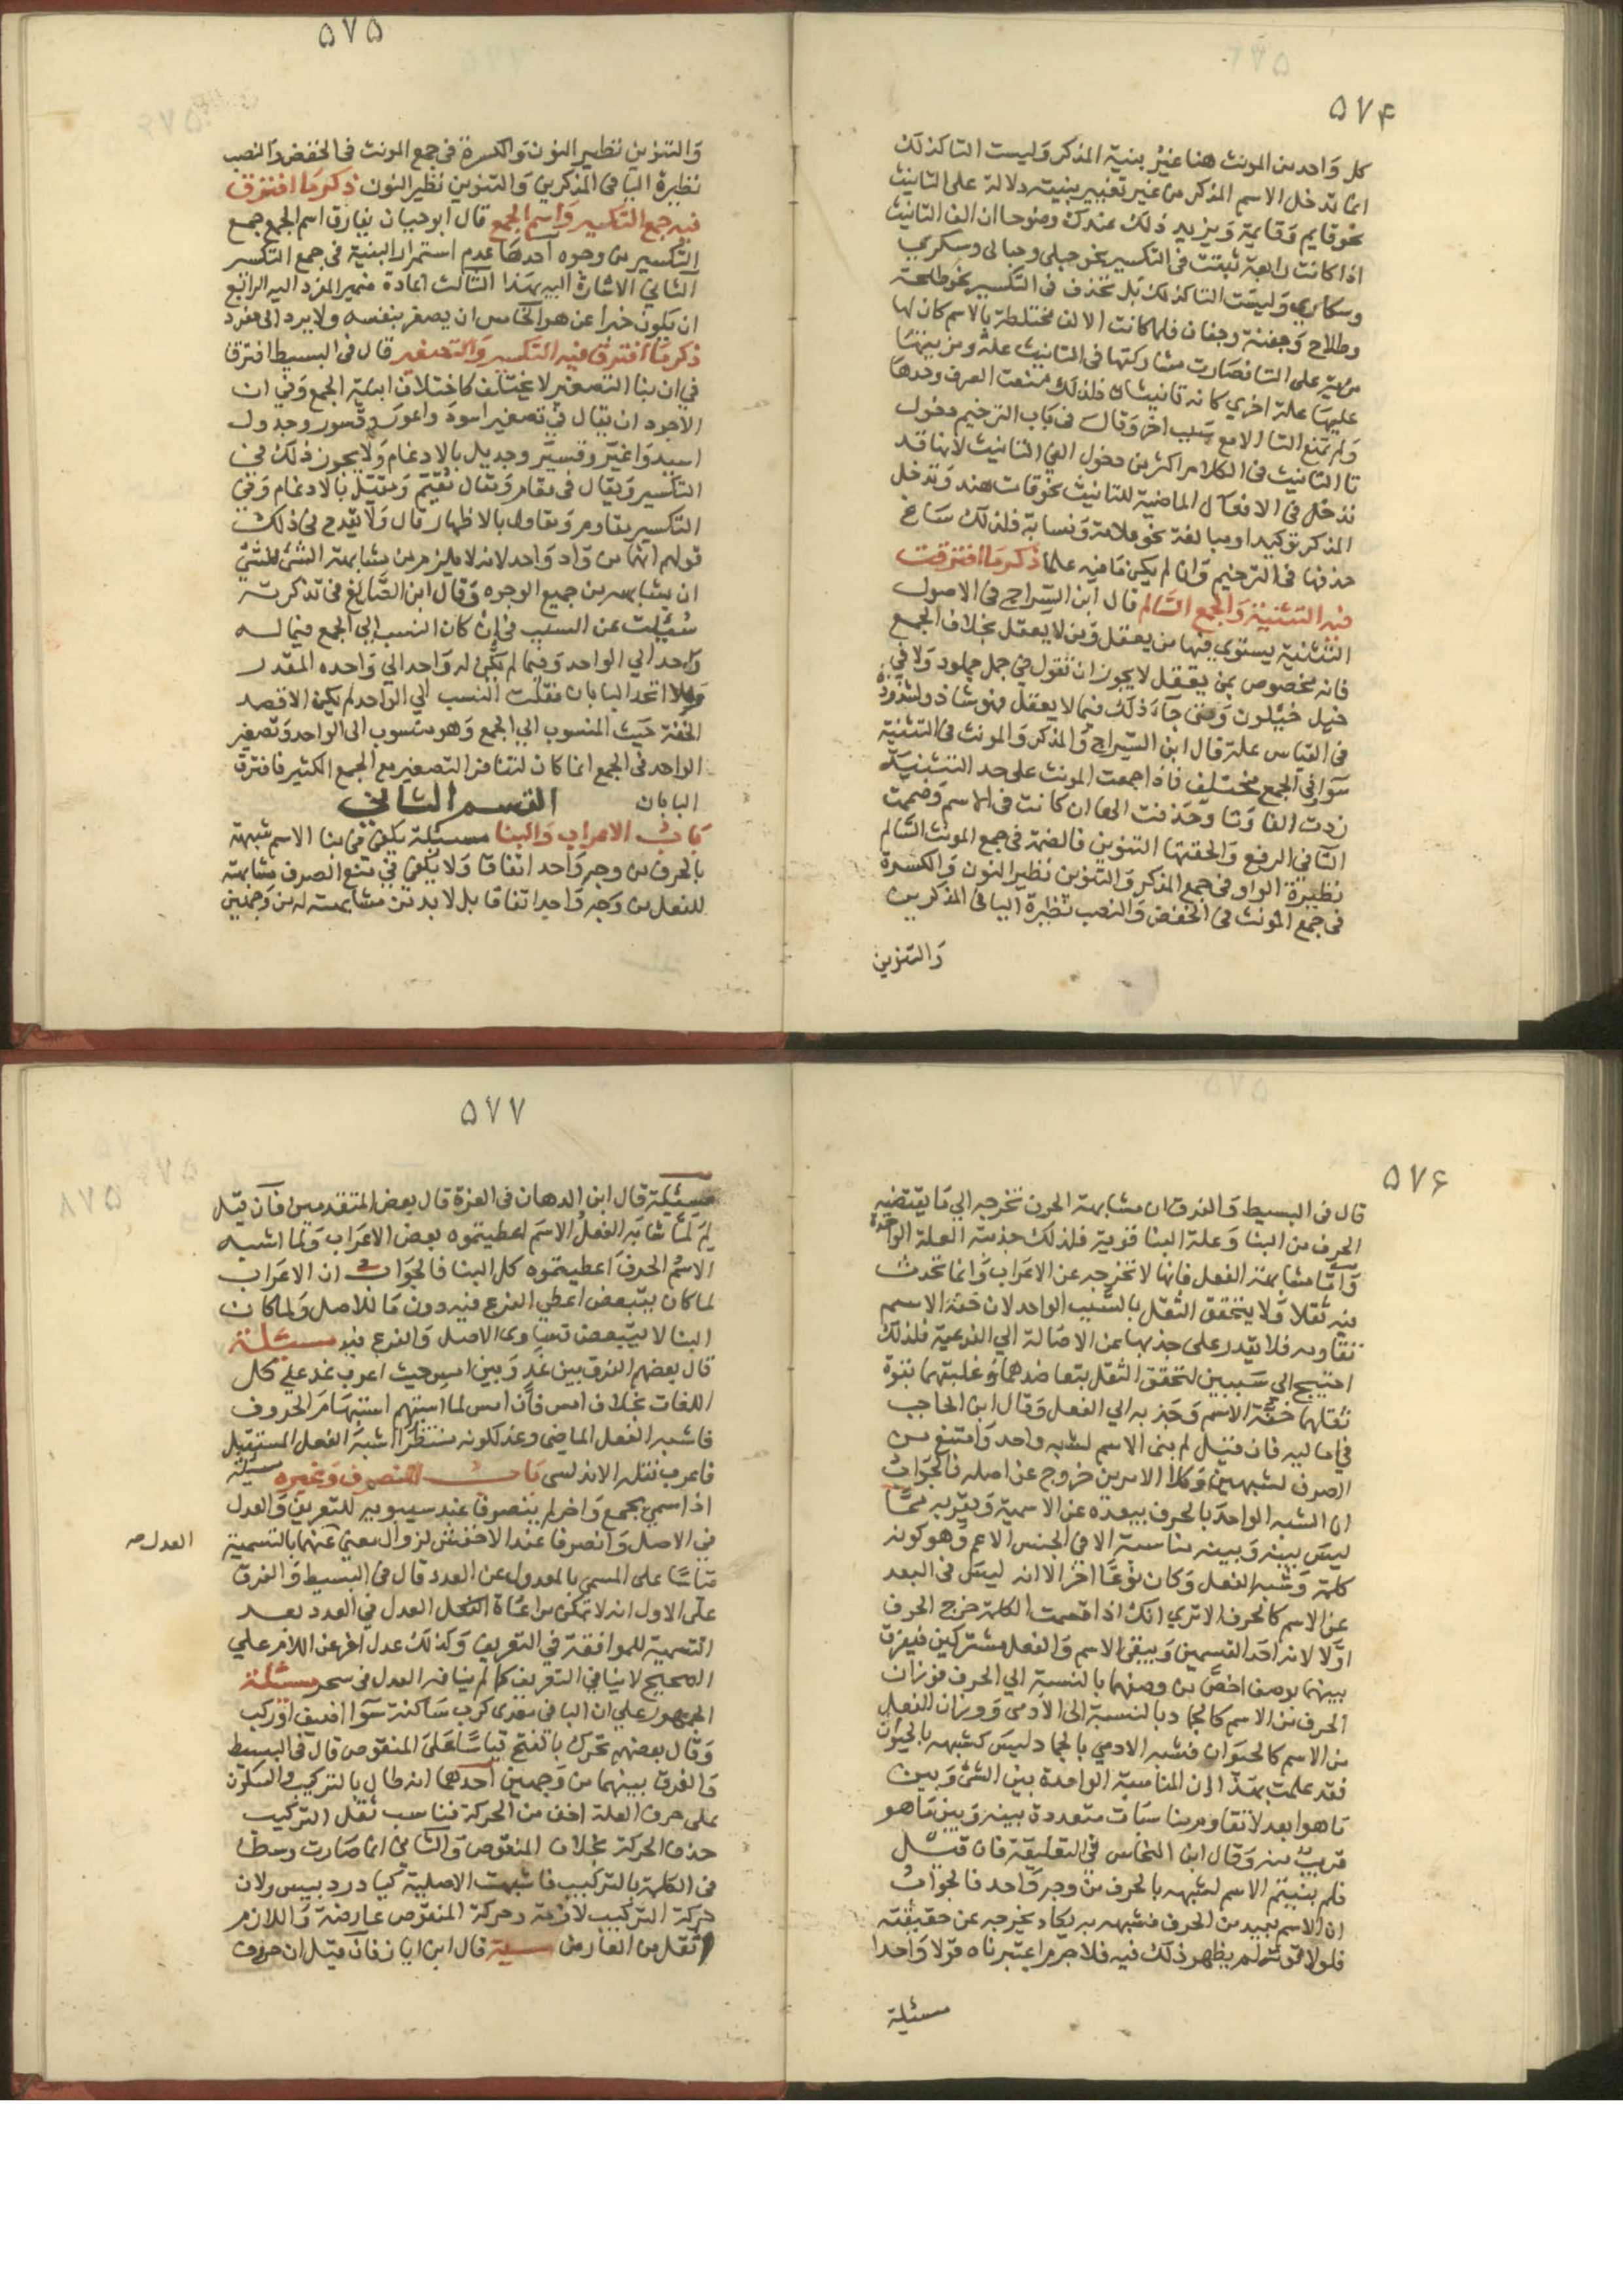 ۵۷۴
كل واحد من المونث هنا غير بنية المذكر وليست التا كذلك
انما تدخل الاسم المذكر من غير تغيير بنيته دلالة على التانيث
نحو قايم وقايمة ويزيد ذلك عندك وضوحا ان الف التانيث
اذا كانت رابعة ثبتت في التكسير نحو حبلى وحبالى وسكري
وسكاري وليست التا كذلك بل تحذف في التكسير نحو طلحة
وطلاح وجفنة وجفان فلما كانت الالف مختلطة بالاسم كان لها
مزية على التا فصارت مشاركتها في التانيث علة ومزيتها
عليها علة اخري كانه تانيثان فلذلك منعت الصرف وحدها
ولم تمنع التا الا مع سبب اخر وقال في باب الترخيم دخول
تا التانيث في الكلام اكثر من دخول الفي التانيث لانها قد
تدخل في الافعال الماضية للتانيث نحو قامت هند وتدخل
المذكر توكيدا ومبالغة نحو علامة ونسابة فلذلك ساغ
حذفها في الترخيم وان لم يكن ما فيه علما ذكر ما افترقت
فيه التثنية والجمع السالم قال ابن السراج في الاصول
التثنية يستوي فيها من يعقل ومن لا يعقل بخلاف الجمع
فانه مخصوص بمن يعقل لا يجوز ان تقول في جمل جملون ولا في
خيل خيلون ومتى جاء ذلك فيما لا يعقل فهو شاذ ولشذوذه
في القياس علة قال ابن السراج والمذكر والمونث في التثنية
سوا في الجمع مختلف فاذا جمعت المونث على حد التثنية
زدت الفا وتا وحذفت الها ان كانت في الاسم وضممت
التا في الرفع والحقتها التنوين فالضمة في جمع المونث السالم
نظيرة الواو في جمع المذكر والتنوين نظير النون والكسرة
في جمع المونث في الخفض والنصب نظيرة اليا في المذكرين
والتنوين
۵۷۵
والتنوين نظير النون والكسرة في جمع المونث في الخفض والنصب
نظيرة اليا في المذكرين والتنوين نظير النون ذكر ما افترق
فيه جمع التكسير واسم الجمع قال ابو حيان يفارق اسم الجمع جمع
التكسير من وجوه احدها عدم استمرار البنية في جمع التكسير
الثاني الاشارة اليه بهذا الثالث اعادة ضمير المفرد اليه الرابع
ان يكون خبرا عن هو الخامس ان يصغر بنفسه ولا يرد الى مفرد
ذكر ما افترق فيه التكسير والتصغير قال في البسيط افترقا
في ان بنا التصغير لا يختلف كاختلاف ابنية الجمع وفي ان
الاجود ان يقال في تصغير اسود واعور وقسور وجدول
اسيد واعير وقسير وجديل بالادغام ولا يجوز ذلك في
التكسير ويقال في مقام ومقال مقيم ومقيل بالادغام وفي
التكسير مقاوم ومقاول بالاظهار قال ولا يقدح في ذلك
قولهم انهما من واد واحد لانه لا يلزم من مشابهة الشئ للشئ
ان يشابهه من جميع الوجوه وقال ابن الصايغ في تذكرته
سئلت عن السبب في ان كان النسب الي الجمع فيما له
واحد الي الواحد وفيما لم يكن له واحد الي واحده المقدر
وهلا اتحد البابان فقلت النسب الي الواحد لم يكن الا قصد
الخفة حيث المنسوب الي الجمع وهو منسوب الى الواحد وتصغير
الواحد في الجمع انما كان لتنافر التصغير مع الجمع الكثير فافترق
البابان القسم الثاني
باب الاعراب والبنا مسئلة يكفي في بنا الاسم شبهة
بالحرف من وجه واحد اتفاقا ولا يكفي في منع الصرف مشابهته
للفعل من وجه واحد اتفاقا بل لا بد من مشابهته له من وجهين
۵۷۶
قال في البسيط والفرق ان مشابهة الحرف تخرجه الي ما يقتضيه
الحرف من البنا وعلة البنا قوية فلذلك جذبته العلة الواحدة
واما مشابهة الفعل فانها لا تخرجه عن الاعراب وانما تحدث
فيه ثقلا ولا يتحقق الثقل بالسبب الواحد لان خفة الاسم
تقاومه فلا يقدر على جذبها عن الاصالة الي الفرعية فلذلك
احتيج الي سببين لتحقق الثقل بتعاضدهما وغلبتهما بقوة
ثقلهما خفة الاسم وجذبه الي الفعل وقال ابن الحاجب
في اماليه فان قيل لم بني الاسم لشبه واحد وامتنع من
الصرف لشبهين وكلا الامرين خروج عن اصله فالجواب
ان الشبه الواحد بالحرف يبعده عن الاسمية ويقربه مما
ليس بينه وبينه مناسبة الا في الجنس الاعم وهو كونه
كلمة وشبه الفعل وكان نوعا اخر الا انه ليس في البعد
عن الاسم كالحرف الا تري انك اذا قسمت الكلمة خرج الحرف
اولا لانه احد القسمين ويبقى الاسم والفعل مشتركين فيفرق
بينهما بوصف اخص من وصفهما بالنسبة الي الحرف فوزان
الحرف من الاسم كالجماد بالنسبة الى الادمي ووزان الفعل
من الاسم كالحيوان فشبه الادمي بالجماد ليس كشبهه بالحيوان
فقد علمت بهذا ان المناسبة الواحدة بين الشئ وبين
ما هو ابعد لا تقاوم مناسبات متعددة بينه وبين ما هو
قريب منه وقال ابن النحاس في التعليقة فان قيل
فلم بنيتم الاسم لشبهه بالحرف من وجه واحد فالجواب
ان الاسم بعيد من الحرف فشبهه به يكاد يخرجه عن حقيقته
فلولا قوته لم يظهر ذلك فيه فلا جرم اعتبرناه قولا واحدا
مسئلة
۵۷۷
مسئلة قال ابن الدهان في الغرة قال بعض المتقدمين فان قيل
لم لما شابه الفعل الاسم اعطيتموه بعض الاعراب ولما اشبه
الاسم الحرف اعطيتموه كل البنا فالجواب ان الاعراب
لما كان يتبعض اعطي الفرع فيه دون ما للاصل ولما كان
البنا لا يتبعض تساوى الاصل والفرع فيه مسئلة
قال بعضهم الفرق بين غد وبين امس حيث اعرب غد على كل
اللغات بخلاف امس فان امس لما استبهم استبهام الحروف
فاشبه الفعل الماضي وغد لكونه منتظرا اشبه الفعل المستقبل
فاعرب نقله الاندلسي باب المنصرف وغيره مسئلة
اذا سمي بجمع واخر لم ينصرفا عند سيبويه للتعريف والعدل
في الاصل وانصرفا عند الاخفش لزوال معنى عنهما بالتسمية
العدل صح
قياسا على المسمي بالمعدول عن العدد قال في البسيط والفرق
على الاول انه لا تمكن مراعاة العدل في العدد بعد
التسمية للموافقة في التعريف وكذلك عدل اخر عن اللام علي
الصحيح لا ينافي التعريف كما لم ينافه العدل في سحر مسئلة
الجمهور علي ان اليا في معدي كرب ساكنة سوا اضيف او ركب
وقال بعضهم تحرك بالفتح قياسا على المنقوص قال في البسيط
والفرق بينهما من وجهين احدهما انه طال بالتركيب والسكون
على حرف العلة اخف من الحركة فناسب ثقل التركيب
حذف الحركة بخلاف المنقوص والثاني انها صارت وسطا
في الكلمة بالتركيب فاشبهت الاصلية كيا دردبيس ولان
حركة التركيب لازمة وحركة المنقوص عارضة واللازم
اثقل من العارض مسئلة قال ابن اياز فان قيل ان حروف
۸۷۵